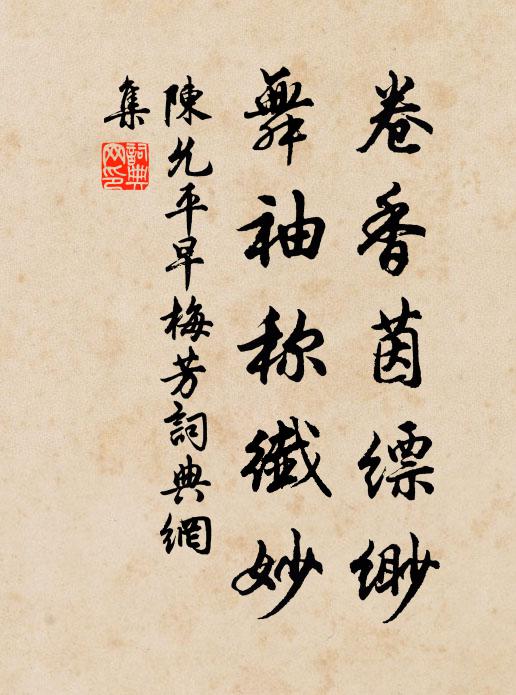 卷香茵縹緲
舞袖称纖妙
陳允平早梅芳詞典網
集
詞典網印